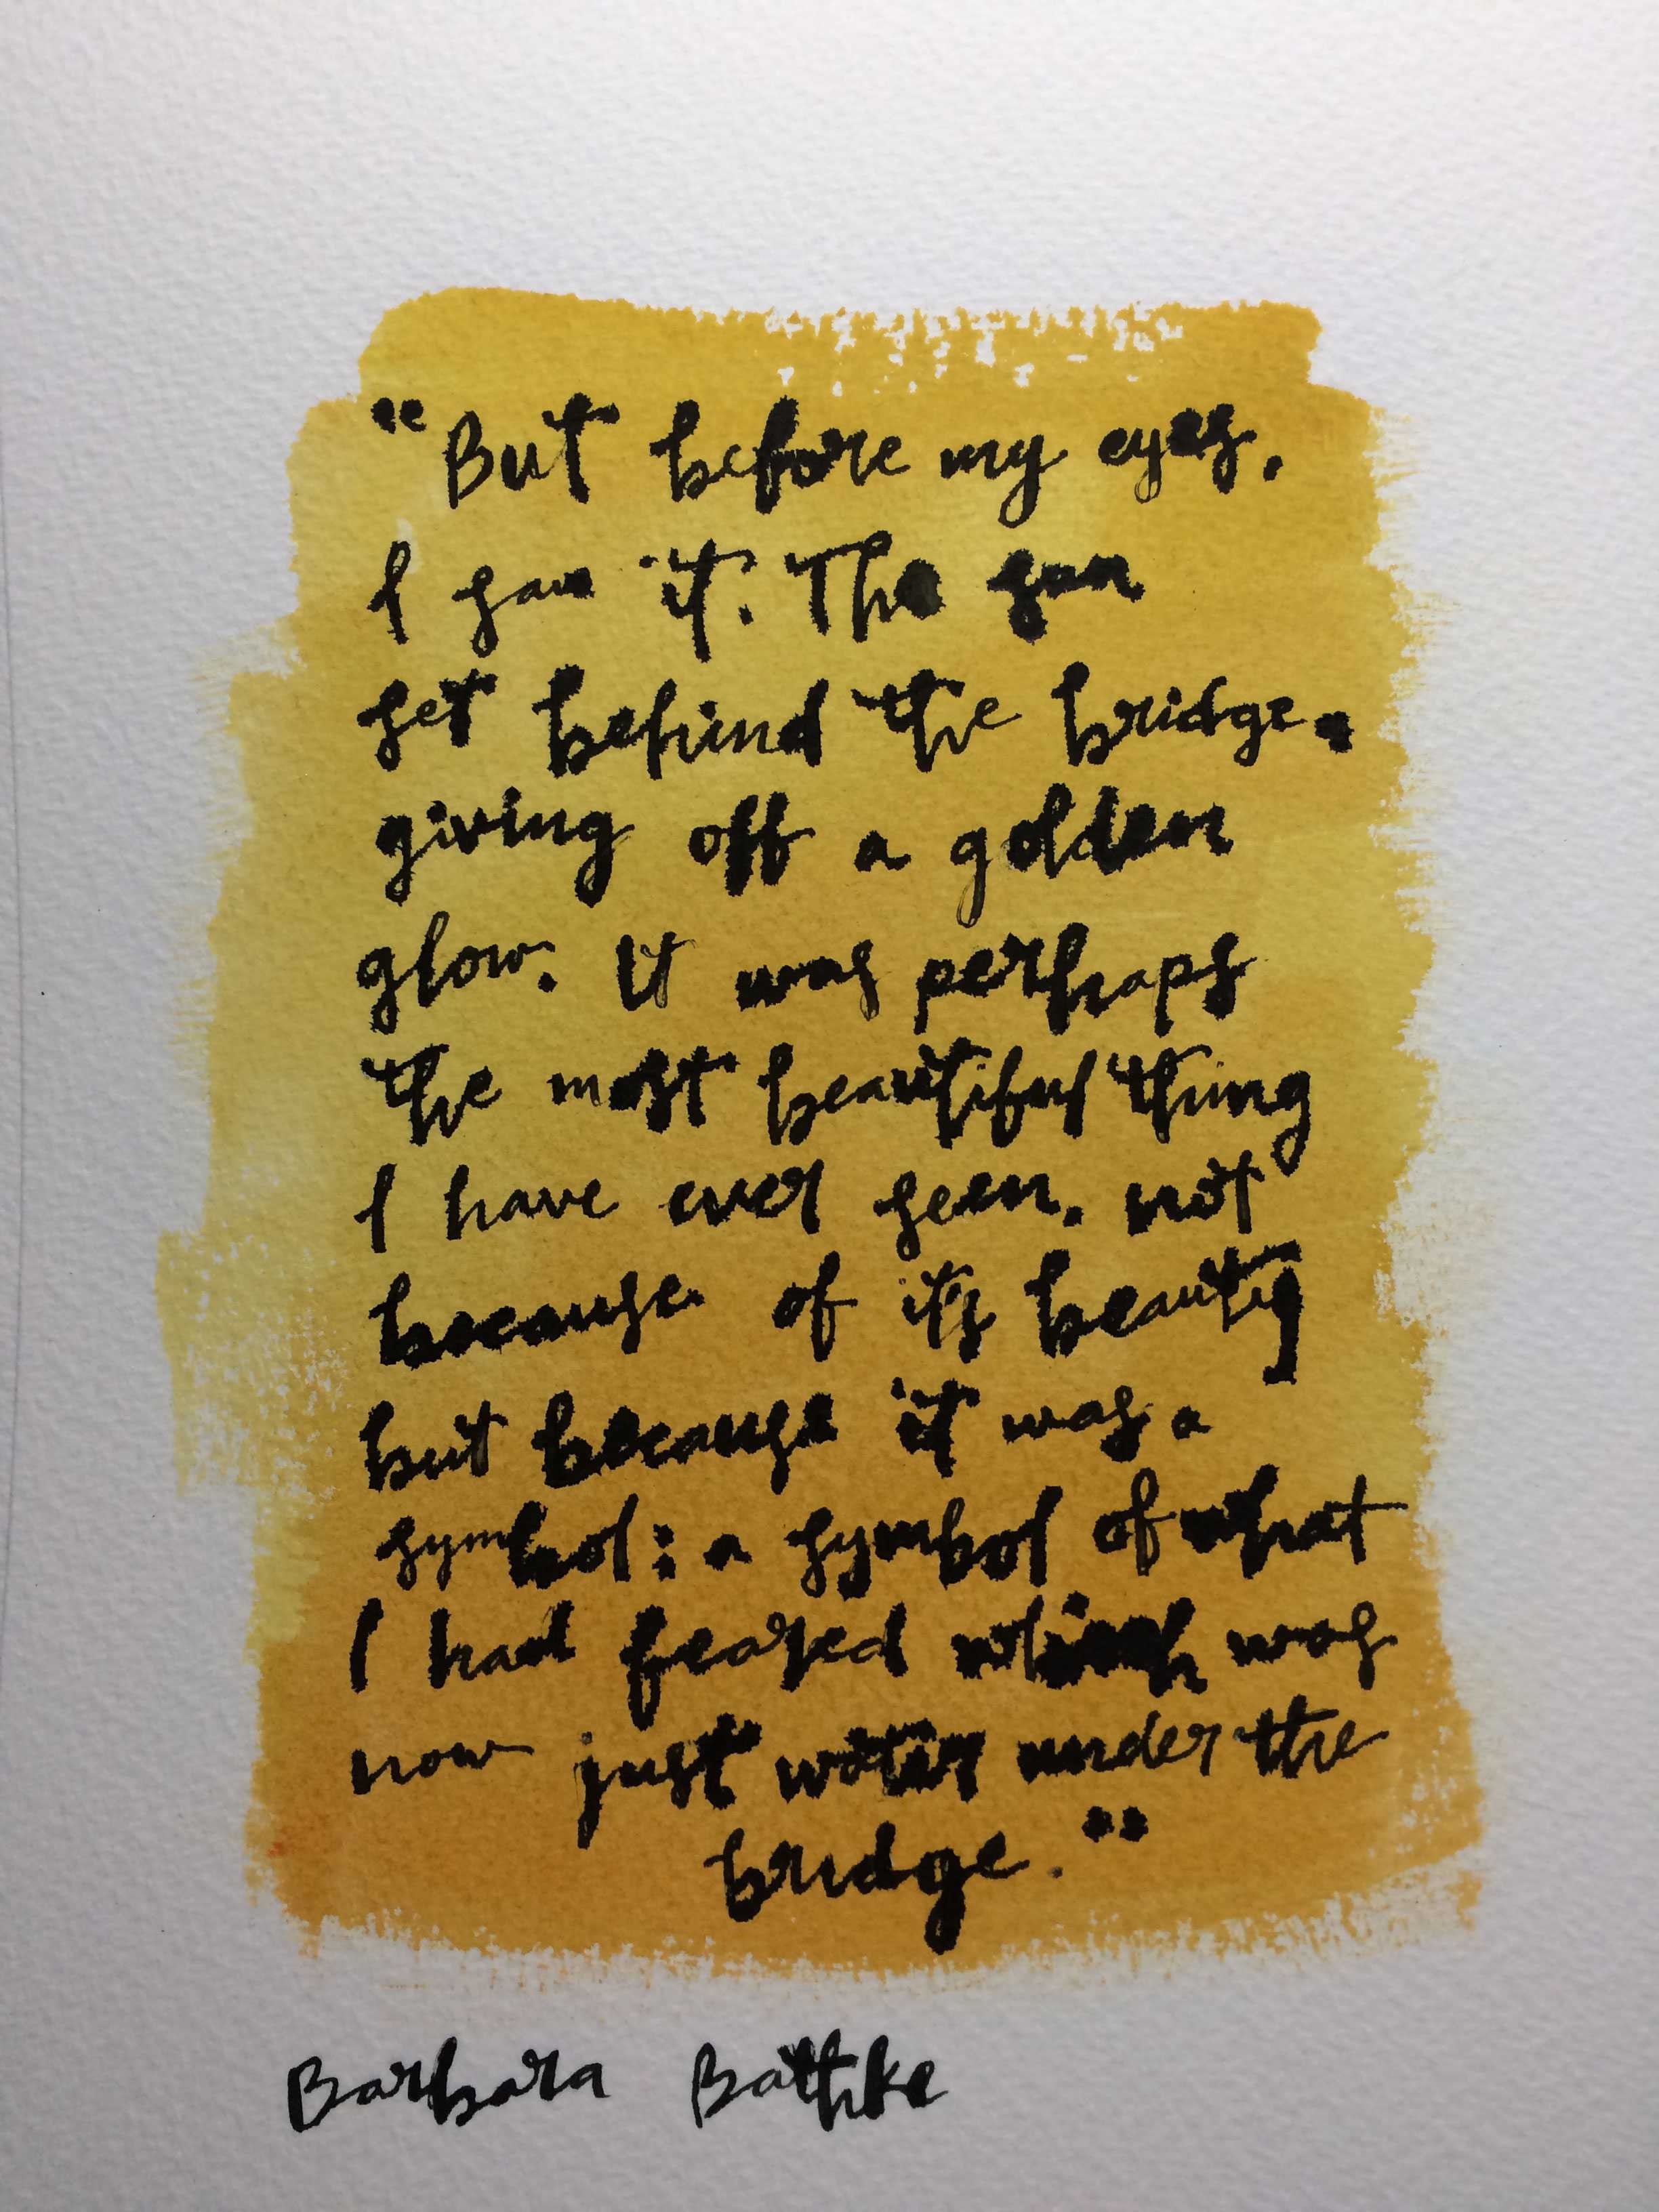 "But before my eyes,
I saw it. The sun
set behind the bridge,
giving off a golden
glow. It was perhaps
the most beautiful thing
I have ever seen, not
because of its beauty
but because it was a
symbol: a symbol of what
I had feared which was
now just water under the
bridge."
Barbara Bathke